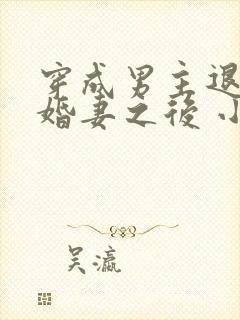 穿成男主退
婚妻之後小
吴瀛